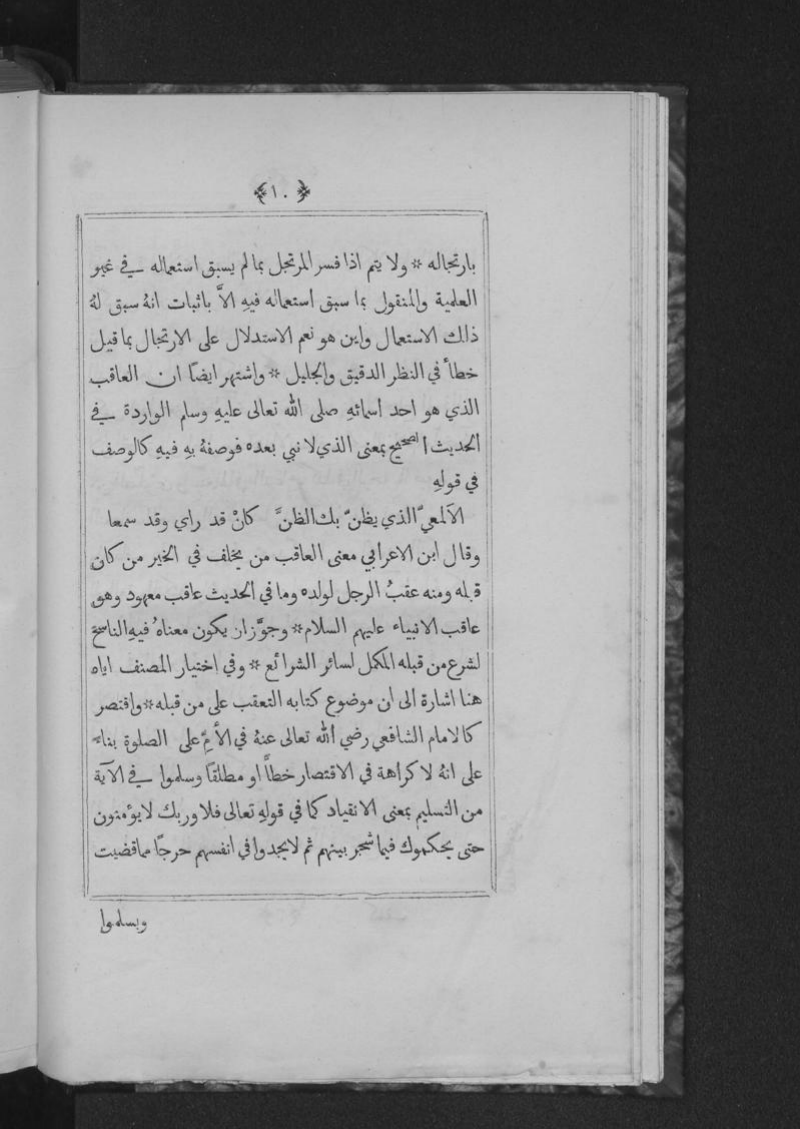 ﴿١٠﴾
بارتجاله * ولا يتم اذا فسر المرتجل بما لم يسبق استعماله في غير
العلمية والمنقول بما سبق استعماله فيهِ الاَّ باثبات انهُ سبق لهُ
ذلك الاستعمال واين هو نعم الاستدلال على الارتجال بما قيل
خطأ في النظر الدقيق والجليل * واشتهر ايضًا ان العاقب
الذي هو احد اسمائهِ صلى الله تعالى عليهِ وسلم الواردة في
الحديث الصحيح بمعنى الذي لا نبي بعده فوصفهُ بهِ فيهِ كالوصف
في قولهِ
الالمعيّ الذي يظنّ بك الظنَّ كانْ قد راي وقد سمعا
وقال ابن الاعرابي معنى العاقب من يخلف في الخير من كان
قبله ومنه عقبُ الرجل لولده وما في الحديث عاقب معهود وهو
عاقب الانبياء عليهم السلام * وجوَّز ان يكون معناهُ فيهِ الناسخ
لشرع من قبله المكمل لسائر الشرائع * وفي اختيار المصنف اياه
هنا اشارة الى ان موضوع كتابه التعقب على من قبله * واقتصر
كالامام الشافعي رضي الله تعالى عنهُ في الأُمّ على الصلوة بناءً
على انهُ لا كراهة في الاقتصار خطاً او مطلقًا وسلموا في الآية
من التسليم بمعنى الانقياد كما في قولهِ تعالى فلا وربك لا يؤمنون
حتى يحكموك فيما شجر بينهم ثم لا يجدوا في انفسهم حرجًا مما قضيت
ويسلموا